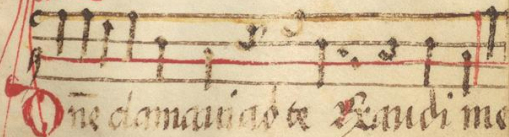 Dn̄e clamaui ad te Exaudi me